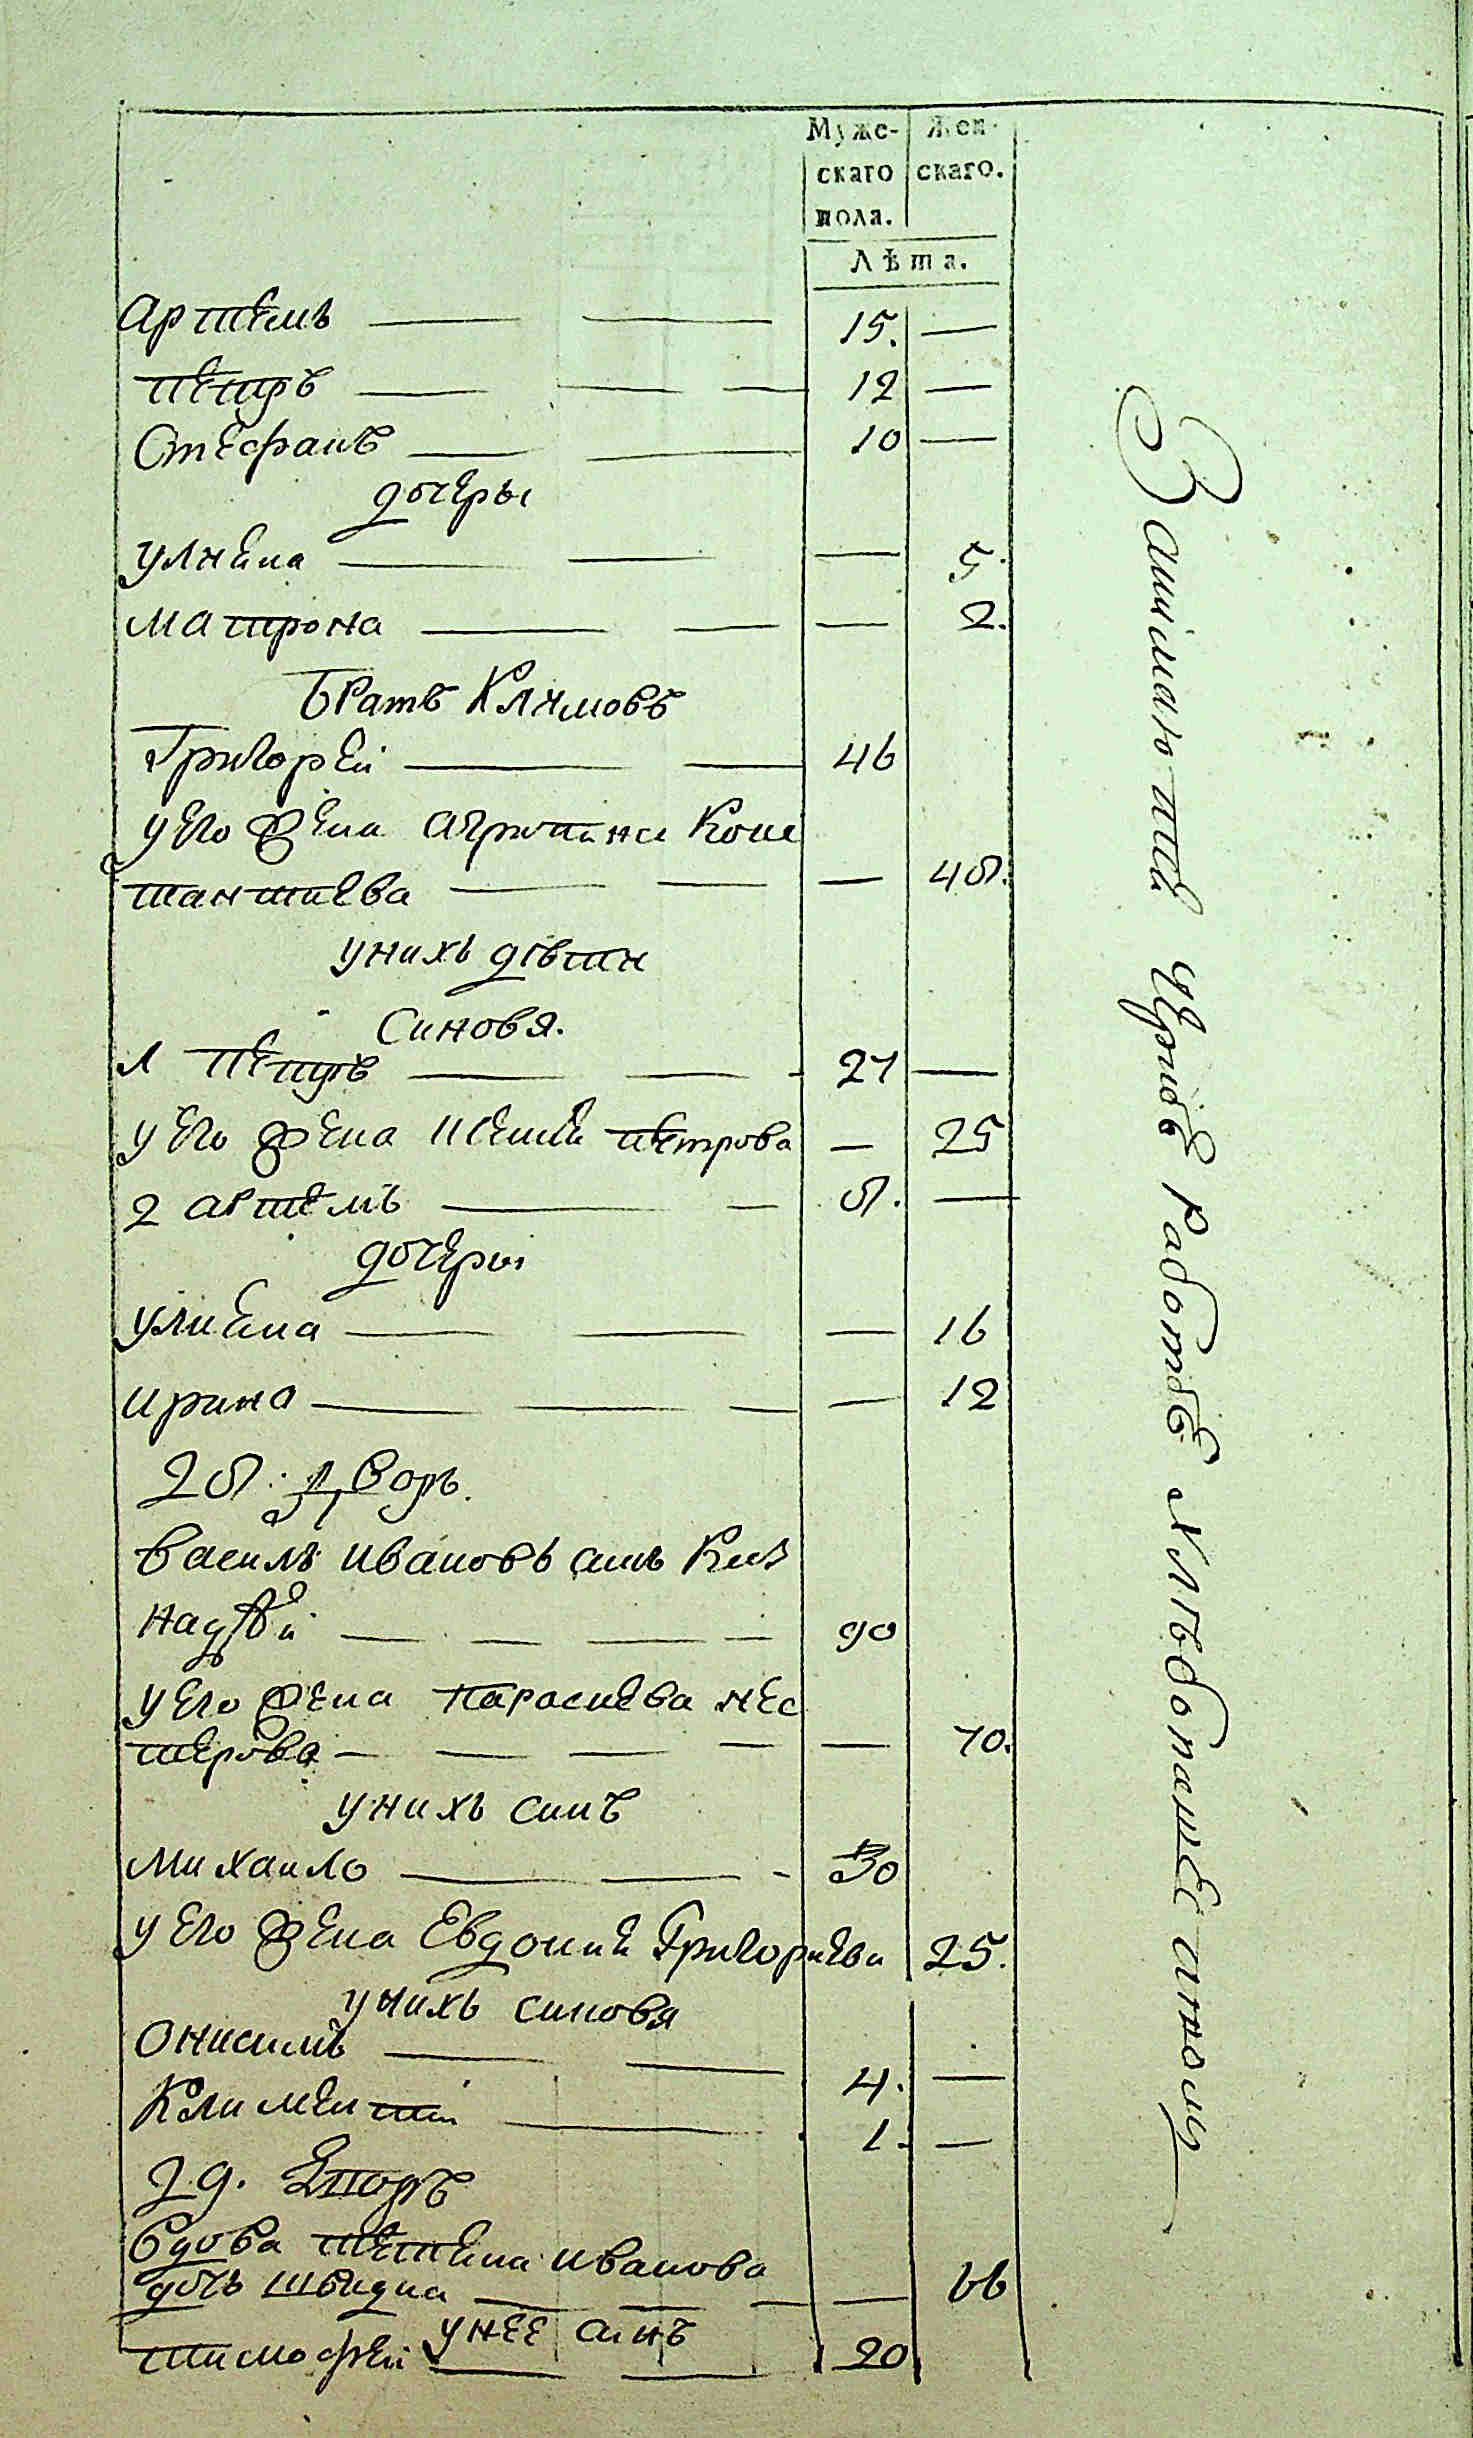 Муже-
скаго
пола.
Жен-
скаго.
Лѣта.
Артемъ 15. —
Петръ 12 —
Стефанъ 10 —
дочеры
Улиена — 5.
Матрона — 2.
Братъ Климовъ
Григорей 46
у его жена Агрипина Конс
тантиева — 48.
у нихъ дѣти
Синовя.
1 Петръ 27 —
у его жена Петрова — 25
2 Артемъ 8. —
дочеры
Улиена — 16
Ирина — 12
28. Дворъ.
Василь Ивановъ синъ
90
у его жена Параскева Нес
терова — 70.
у нихъ синъ
Михаило 30
у его жена Евдокия Григориева 25.
у нихъ синовя
Онисимъ 4. —
Климентий 1. —
29. Дворъ
Вдова Иванова
дочь — 66
у нее синъ
Тимофей 20
Работою хлѣбопашественною